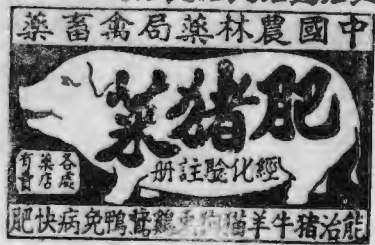 中國農林藥局禽畜藥
肥猪菜
經化騐註册
各處
藥店
有售
能治猪牛羊猫狗鷄鵞鴨免病快肥